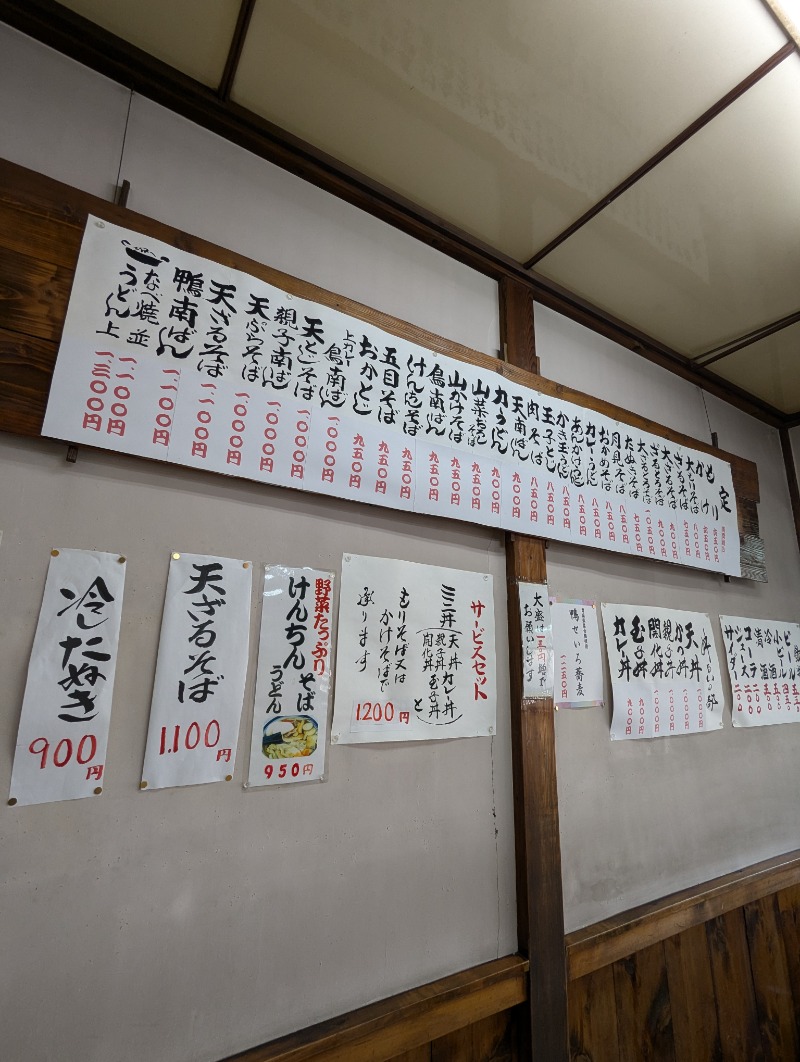 もり 六五〇円
かけ 六五〇円
大もりそば 八〇〇円
ざるそば 七五〇円
大ざるそば 九〇〇円
月見そば 八五〇円
おかめそば 八五〇円
カレーうどん 八五〇円
あんかけうどん 八五〇円
かき玉うどん 八五〇円
玉子とじ 八五〇円
肉そば 八五〇円
天南ばん 九〇〇円
力うどん 九〇〇円
山菜おろしそば 九五〇円
山かけそば 九五〇円
鳥南ばん 九五〇円
けんちんそば 九五〇円
五目そば 九五〇円
おかとじ 九五〇円
上カレー 鳥南ばん 一、〇〇〇円
天とじそば 一、〇〇〇円
親子南ばん 一、〇〇〇円
天ぷらそば 一、〇〇〇円
天ざるそば 一、一〇〇円
鴨南ばん 一、一〇〇円
なべ焼うどん
並 一、一〇〇円
上 一、三〇〇円
冷したぬき
900円
天ざるそば
1.100円
野菜たっぷり
けんちんそば
うどん
950円
サービスセット
ミニ丼(天丼 カレー丼
親子丼 玉子丼
開化丼)と
もりそば又は
かけそばで
承ります
1200円
大盛は
お願いします
鴨せいろ蕎麦
一二五〇円
丼もの部
天丼 一〇〇〇円
かつ丼 一〇〇〇円
親子丼 一〇〇〇円
開化丼 一〇〇〇円
玉子丼 九〇〇円
カレー丼 九〇〇円
ビール
小ビール
冷酒
清酒
コーラ
ジュース
サイダー